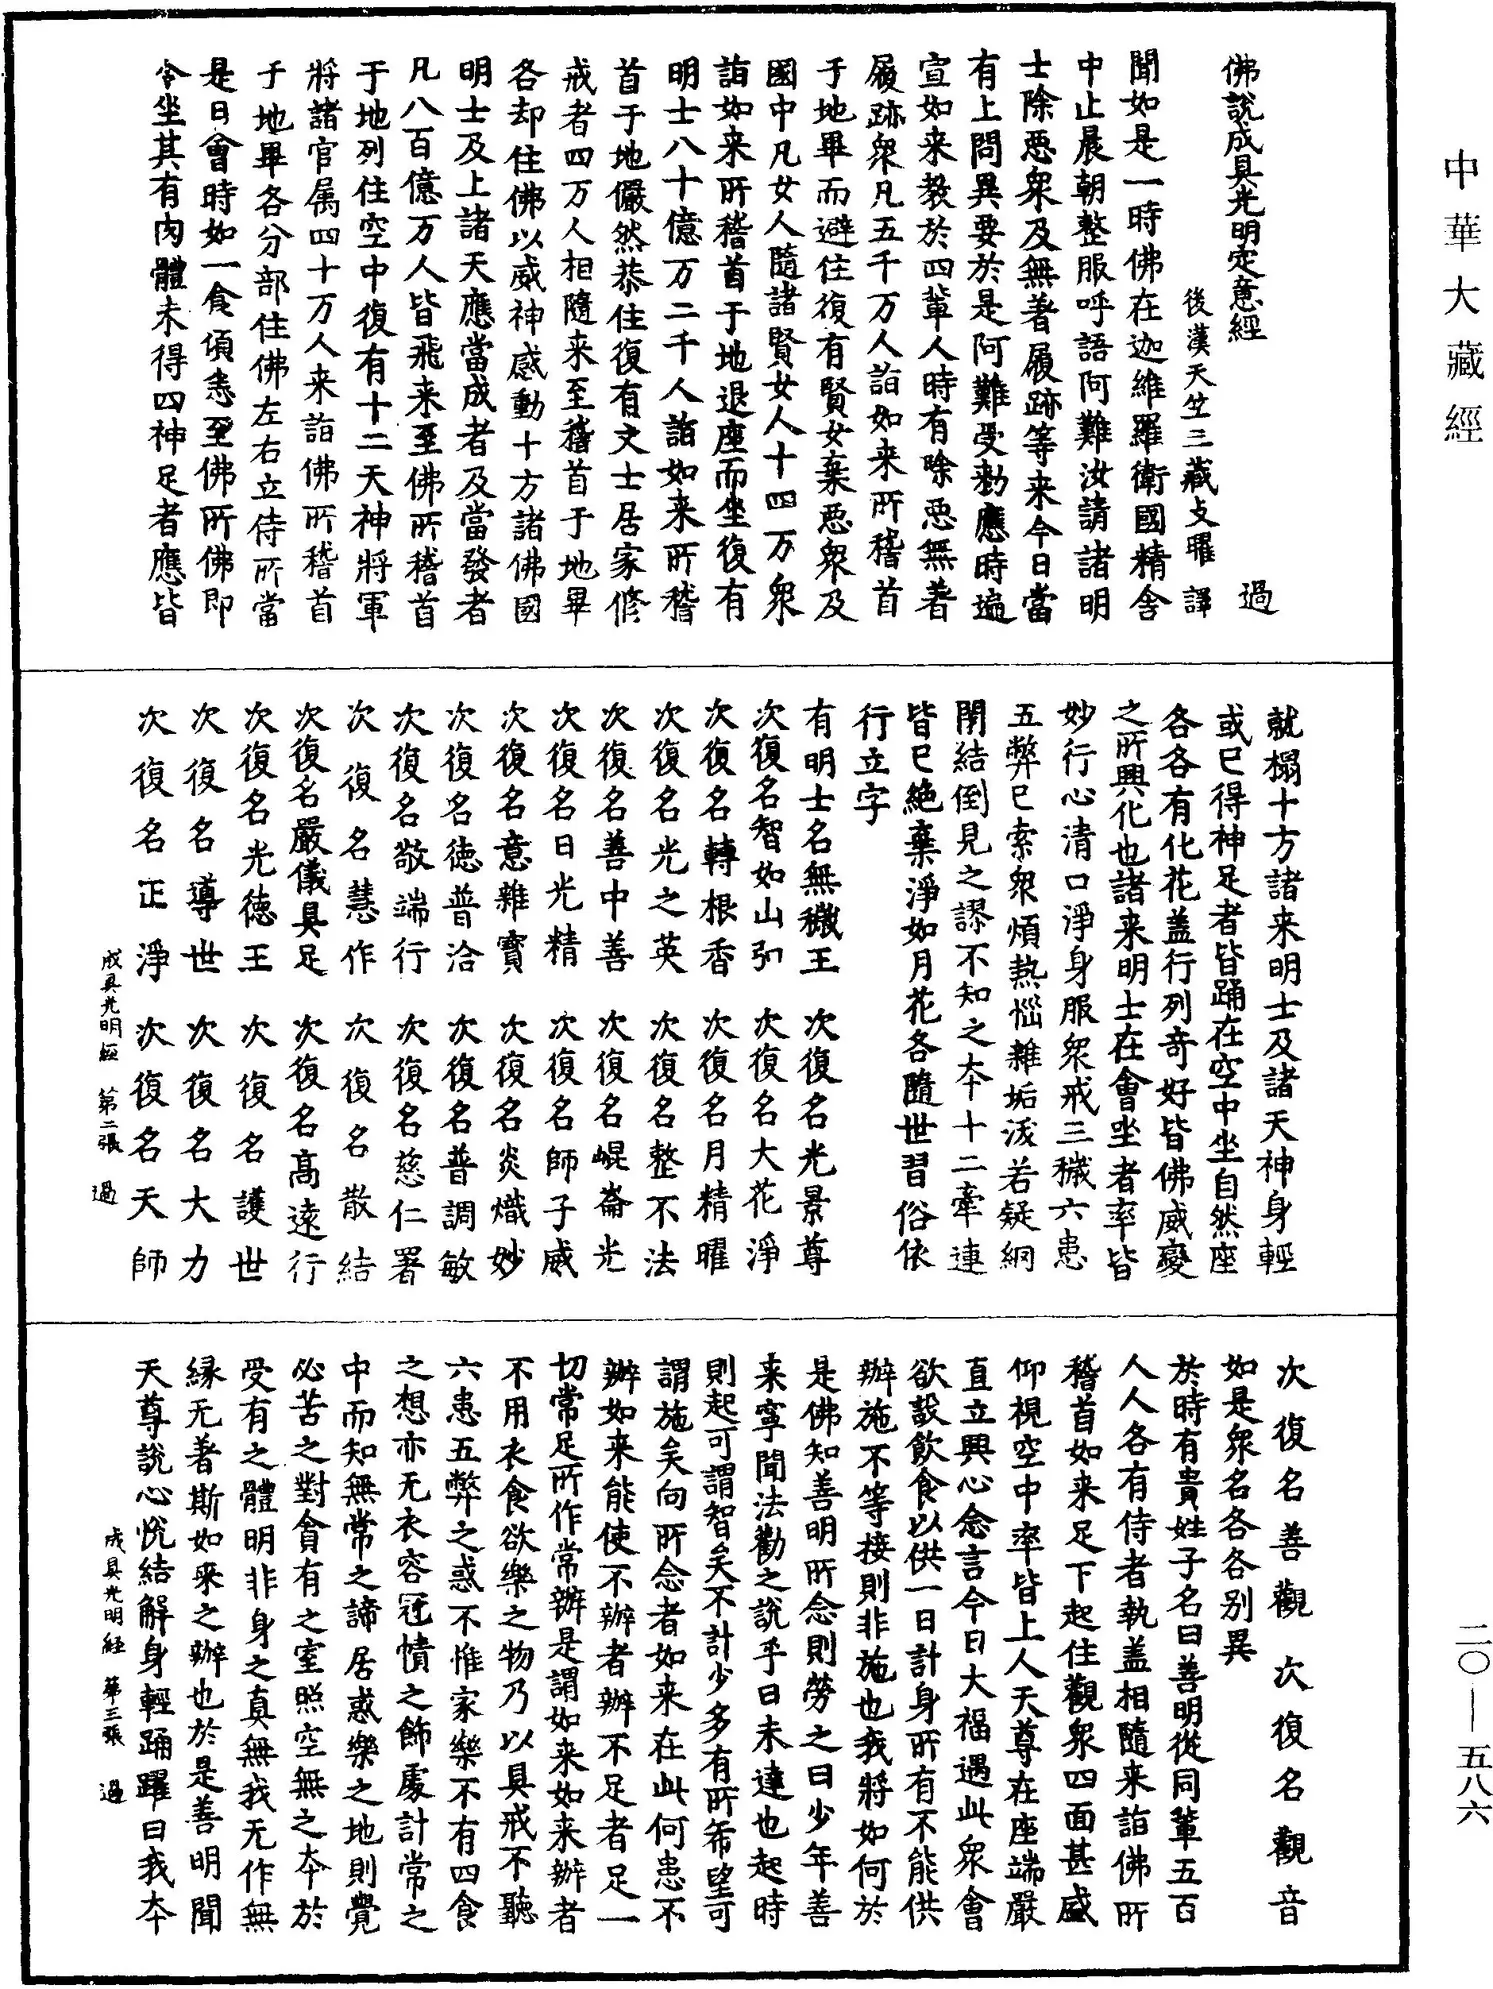 中華大藏經
佛說成具光明定意經　過
後漢天竺三藏支曜　譯
聞如是一時佛在迦維羅衛國精舍
中止晨朝整服呼語阿難汝請諸明
士除惡眾及無著履跡等来今日當
有上問異要於是阿難受勑應時遍
宣如来教於四輩人時有除惡無著
履跡眾凡五千万人詣如来所稽首
于地畢而避住復有賢女棄惡眾及
國中凡女人隨諸賢女人十四万眾
詣如来所稽首于地退座而坐復有
明士八十億万二千人詣如来所稽
首于地儼然恭住復有文士居家修
戒者四万人相隨来至稽首于地畢
各却住佛以威神感動十方諸佛國
明士及上諸天應當成者及當發者
凡八百億万人皆飛来至佛所稽首
于地列住空中復有十二天神將軍
將諸官属四十万人来詣佛所稽首
于地畢各分部住佛左右立侍所當
是日會時如一食頃悉至佛所佛即
令坐其有肉體未得四神足者應皆
就榻十方諸来明士及諸天神身輕
或已得神足者皆踊在空中坐自然座
各各有化花盖行列奇好皆佛威變
之所興化也諸来明士在會坐者率皆
妙行心清口淨身服眾戒三穢六患
五弊已索眾煩熱惱雜垢泼若疑網
閉結倒見之謬不知之夲十二牽連
皆已絶棄淨如月花各隨世習俗依
行立字
有明士名無穢王　次復名光景尊
次復名智如山弘　次復名大花淨
次復名轉根香　次復名月精曜
次復名光之英　次復名整不法
次復名善中善　次復名崐崙光
次復名日光精　次復名師子威
次復名意雜寶　次復名炎熾妙
次復名徳普洽　次復名普調敏
次復名敬端行　次復名慈仁署
次復名慧作　次復名散結
次復名嚴儀具足　次復名高遠行
次復名光徳王　次復名護世
次復名導世　次復名大力
次復名正淨　次復名天師
成具光明經　第二張　過
次復名善觀　次復名觀音
如是眾名各各别異
於時有貴姓子名曰善明從同輩五百
人人各有侍者執盖相隨来詣佛所
稽首如来足下起住觀眾四面甚盛
仰視空中率皆上人天尊在座端嚴
直立興心念言今日大福遇此眾會
欲設飲食以供一日計身所有不能供
辦施不等接則非施也我將如何於
是佛知善明所念則勞之曰少年善
来寧聞法勸之說乎曰未達也起時
則起可謂智矣不計少多有所希望可
謂施矣向所念者如来在此何患不
辦如来能使不辦者辦不足者足一
切常足所作常辦是謂如来如来辦者
不用衣食欲樂之物乃以具戒不聽
六患五弊之惑不惟家樂不有四食
之想亦无衣容冠幘之飾處計常之
中而知無常之諦居惑樂之地則覺
必苦之對貪有之室照空無之夲於
受有之體明非身之真無我无作無
緣无著斯如来之辦也於是善明聞
天尊說心恱結解身輕踊躍曰我夲
成具光明經　第三張　過
二〇—五八六